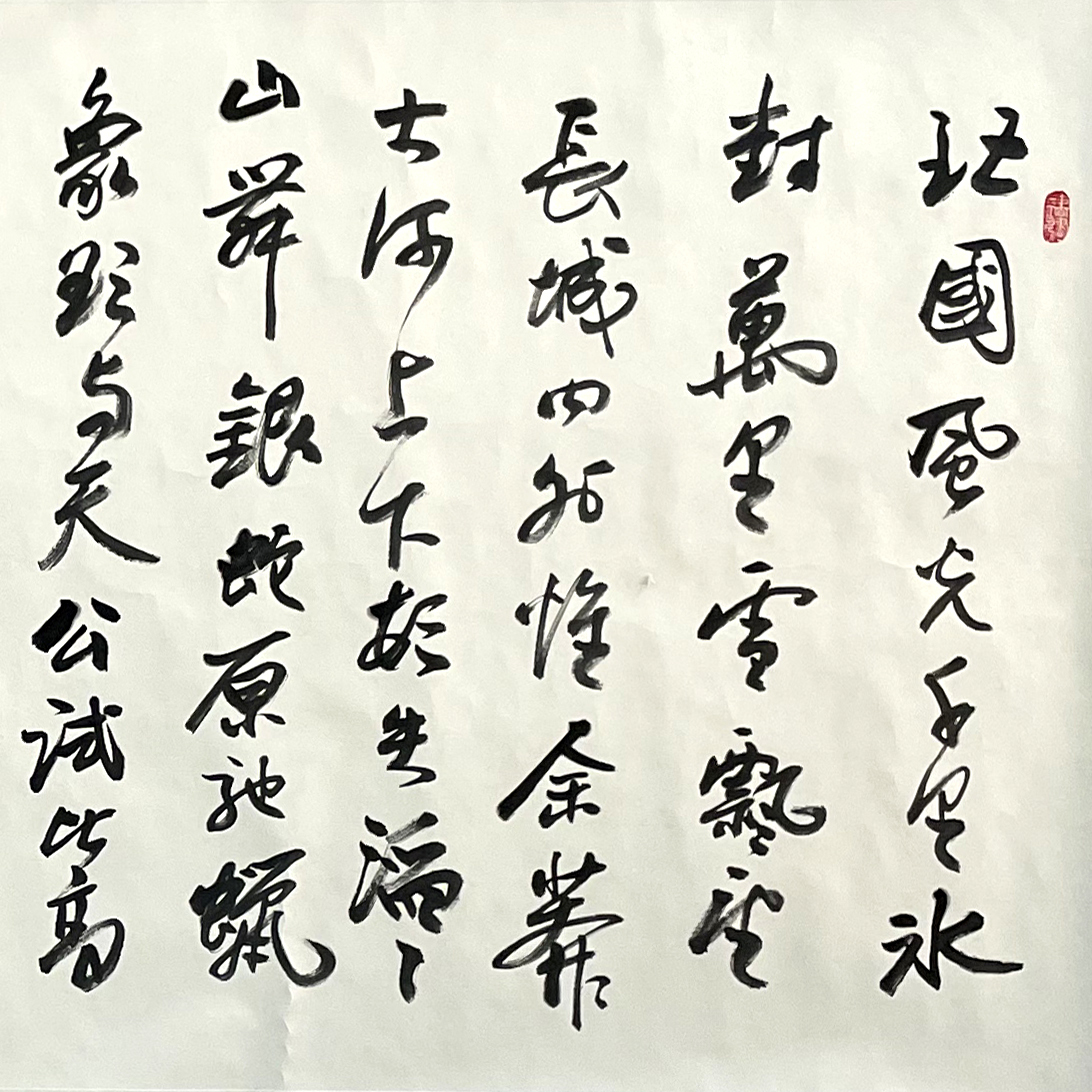 北國風光千里冰
封萬里雪飄望
長城內外惟余莽莽
大河上下頓失滔滔
山舞銀蛇原馳蠟
象欲与天公試比高